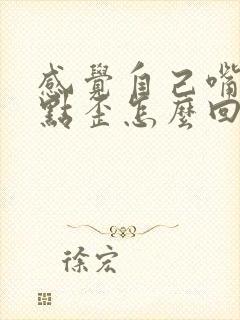 感覺自己嘴
點歪怎麼回
徐宏